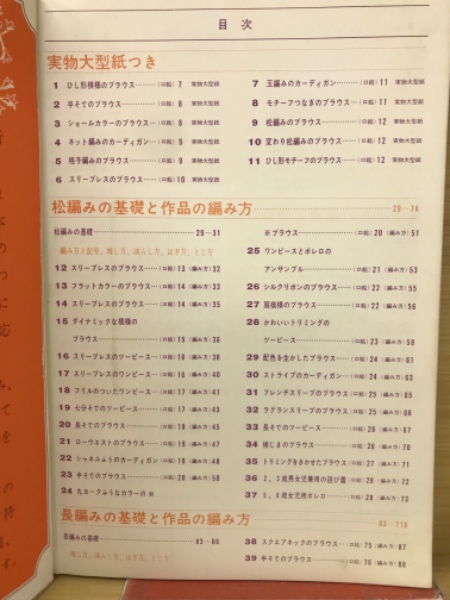 目 次
実物大型紙つき
1 ひし形模様のブラウス……(口絵) 7 実物大型紙
2 半そでのブラウス……(口絵) 8 実物大型紙
3 ショールカラーのブラウス…(口絵) 8 実物大型紙
4 ネット編みのカーディガン…(口絵) 9 実物大型紙
5 格子編みのブラウス……(口絵) 9 実物大型紙
6 スリープレスのブラウス…(口絵) 10 実物大型紙
7 玉編みのカーディガン……(口絵) 11 実物大型紙
8 モチーフつなぎのブラウス…(口絵) 11 実物大型紙
9 松編みのブラウス……(口絵) 12 実物大型紙
10 変わり松編みのブラウス…(口絵) 12 実物大型紙
11 ひし形モチーフのブラウス…(口絵) 12 実物大型紙
松編みの基礎と作品の編み方……29～74
松編みの基礎……29～31
編み方と記号、増し方、減らし方、はぎ方、とじ方
12 スリープレスのブラウス…(口絵) 13 (編み方) 32
13 フラットカラーのブラウス…(口絵) 14 (編み方) 33
14 スリープレスのブラウス…(口絵) 14 (編み方) 35
15 ダイナミックな模様の
ブラウス……(口絵) 15 (編み方) 36
16 スリープレスのツーピース…(口絵) 16 (編み方) 38
17 スリープレスのワンピース…(口絵) 16 (編み方) 40
18 フリルのついたワンピース…(口絵) 17 (編み方) 41
19 七分そでのツーピース……(口絵) 17 (編み方) 43
20 長そでのブラウス……(口絵) 18 (編み方) 45
21 ローウエストのブラウス…(口絵) 19 (編み方) 47
22 シャネルふうのカーディガン(口絵) 19 (編み方) 48
23 半そでのブラウス……(口絵) 20 (編み方) 50
24 丸ヨークふうなカラーの
ブラウス……(口絵) 20 (編み方) 51
25 ワンピースとボレロの
アンサンブル……(口絵) 21 (編み方) 53
26 シルクリボンのブラウス…(口絵) 22 (編み方) 55
27 扇模様のブラウス……(口絵) 22 (編み方) 56
28 かわいいトリミングの
ツーピース……(口絵) 23 (編み方) 58
29 配色を生かしたブラウス…(口絵) 24 (編み方) 61
30 ストライプのカーディガン…(口絵) 24 (編み方) 63
31 フレンチスリーブのブラウス(口絵) 25 (編み方) 65
32 ラグランスリーブのブラウス(口絵) 25 (編み方) 66
33 長そでのツーピース……(口絵) 26 (編み方) 67
34 横じまのブラウス……(口絵) 26 (編み方) 70
35 トリミングをきかせたブラウス(口絵) 27 (編み方) 71
36 2、3歳男女児兼用の遊び着(口絵) 28 (編み方) 72
37 5、6歳女児用ボレロ…(口絵) 28 (編み方) 73
長編みの基礎と作品の編み方……83～118
長編みの基礎……83～86
増し方、減らし方、はぎ方、とじ方
38 スクエアネックのブラウス…(口絵) 75 (編み方) 87
39 半そでのブラウス……(口絵) 76 (編み方) 88